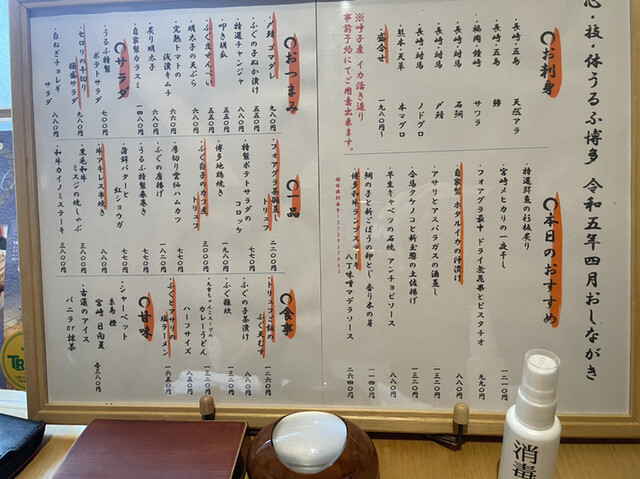 心・技・体うるふ博多 令和五年四月おしながき
〇お刺身
・長崎・五島 天然アラ
・長崎・五島 鰆
・福岡・鐘崎 サワラ
・長崎・対馬 石鯛
・長崎・対馬 〆鯖
・長崎・対馬 ノドグロ
・熊本・天草 本マグロ
・盛合せ 一九八〇〜
※呼子産 イカ活き造り
事前予約にてご用意出来ます。
〇本日のおすすめ
・特選鮮魚の杉板炙り
・宮崎メヒカリの一夜干し 一二一〇円
・フォアグラ最中 ドライ無花果とピスタチオ 九九〇円
・自家製ホタルイカの沖漬け 八八〇円
・アサリとアスパラガスの酒蒸し
・合馬タケノコと新玉葱の土佐揚げ 一三二〇円
・早生キャベツの石焼 アンチョビソース 八八〇円
・鯛の子と新ごぼうの卵とじ 香り木の芽 一一四〇円
・博多和牛ランプステーキ 八丁味噌マデラソース 二六四〇円
〇おつまみ
・〆鯖ゴマダレ 九八〇円
・ふぐの子ぬか漬け 五五〇円
・特選チャンジャ 五五〇円
・叩き胡瓜
・ふぐ皮せんべい
・明太子の天ぷら
・完熟トマトの浅漬キムチ
・炙り明太子
・自家製カラスミ
〇サラダ
・うるふ特製ポテトサラダ 七〇〇円
・セロリの千切り 桶盛サラダ 九八〇円
・白ねぎチョレギサラダ 八八〇円
〇一品
・フォアグラ茶碗蒸し トリュフ 二二〇〇円
・特製ポテトサラダのコロッケ 七七〇円
・博多地鶏焼き 一九八〇円
・ふぐ白子のカツ煮 トリュフ 三〇〇〇円
・厚切雲仙ハムカツ 七七〇円
・ふぐの唐揚げ
・うるふ特製春巻き
・蒲鉾バターと紅ショウガ
・牛アキレス本焼き
・黒毛和牛ミスジの焼しゃぶ
・和牛カイノミステーキ 三八〇〇円
〇食事
・トリュフご飯のふぐ天むす 一二六〇円
・ふぐの子茶漬け 八八〇円
・ふぐ雑炊 一三二〇円
カレーうどん 一三二〇円
ハーフサイズ
・ふぐとアサリの塩ラーメン 一六五〇円
〇甘味
・シャーベット
宮崎 日向夏
・古蓮のアイス
バニラor抹茶
消毒